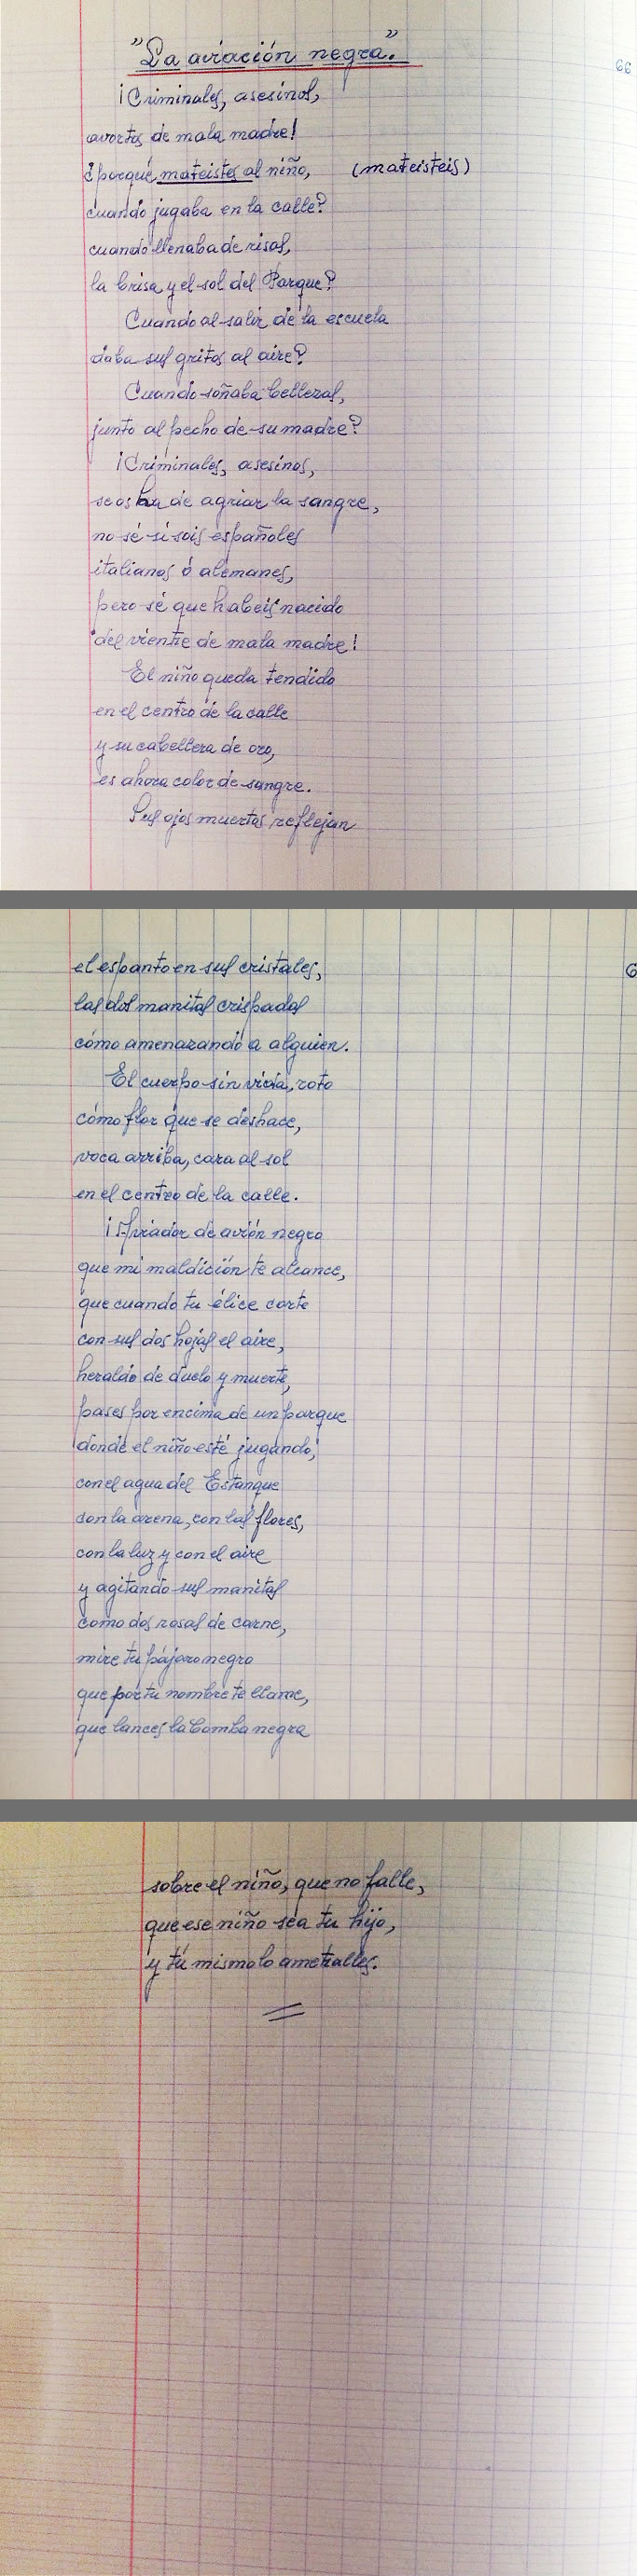 "La aviación negra."
66
¡Criminales, asesinos,
avortos de mala madre!
¿porqué mateistes al niño, (mateisteis)
cuando jugaba en la calle?
cuando llenaba de risas,
la brisa y el sol del Parque?
Cuando al salir de la escuela
daba sus gritos al aire?
Cuando soñaba bellezas,
junto al pecho de su madre?
¡Criminales, asesinos,
se os ha de agriar la sangre,
no sé si sois españoles
italianos ó alemanes,
pero sé que habeis nacido
del vientre de mala madre!
El niño queda tendido
en el centro de la calle
y su cabellera de oro,
es ahora color de sangre.
Sus ojos muertos reflejan
el espanto en sus cristales,
las dos manitas crispadas
cómo amenazando a alguien.
El cuerpo sin vida, roto
cómo flor que se deshace,
voca arriba, cara al sol
en el centro de la calle.
¡Aviador de avión negro
que mi maldición te alcance,
que cuando tu élice corte
con sus dos hojas el aire,
heraldo de duelo y muerte,
pases por encima de un parque
donde el niño esté jugando,
con el agua del Estanque
con la arena, con las flores,
con la luz y con el aire
y agitando sus manitas
como dos rosas de carne,
mire tu pájaro negro
que por tu nombre te llame,
que lances la bomba negra
sobre el niño, que no falle,
que ese niño sea tu hijo,
y tú mismo lo ametralles.